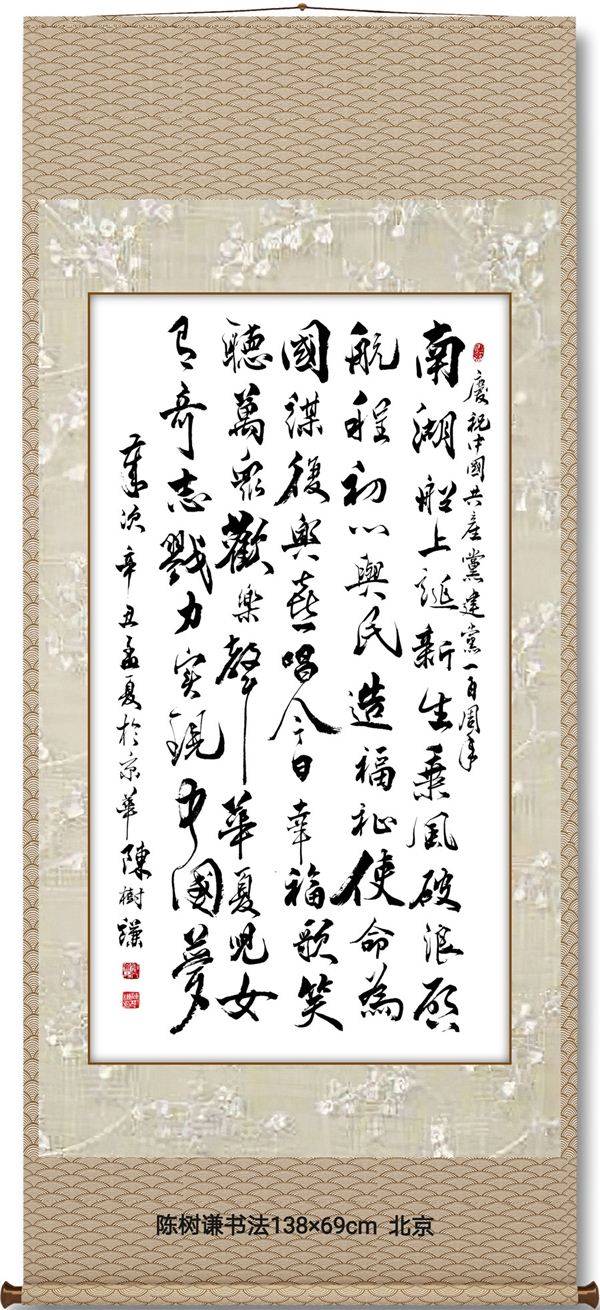 慶祝中國共產黨建黨一百周年
南湖船上誕新生乘風破浪啟
航程初心與民造福祉使命為
國謀復興喜唱今日幸福歌笑
聽萬眾歡樂聲華夏兒女
有奇志戮力实現中國夢
歲次辛丑孟夏於京華陳樹謙
陈树谦书法138×69cm 北京